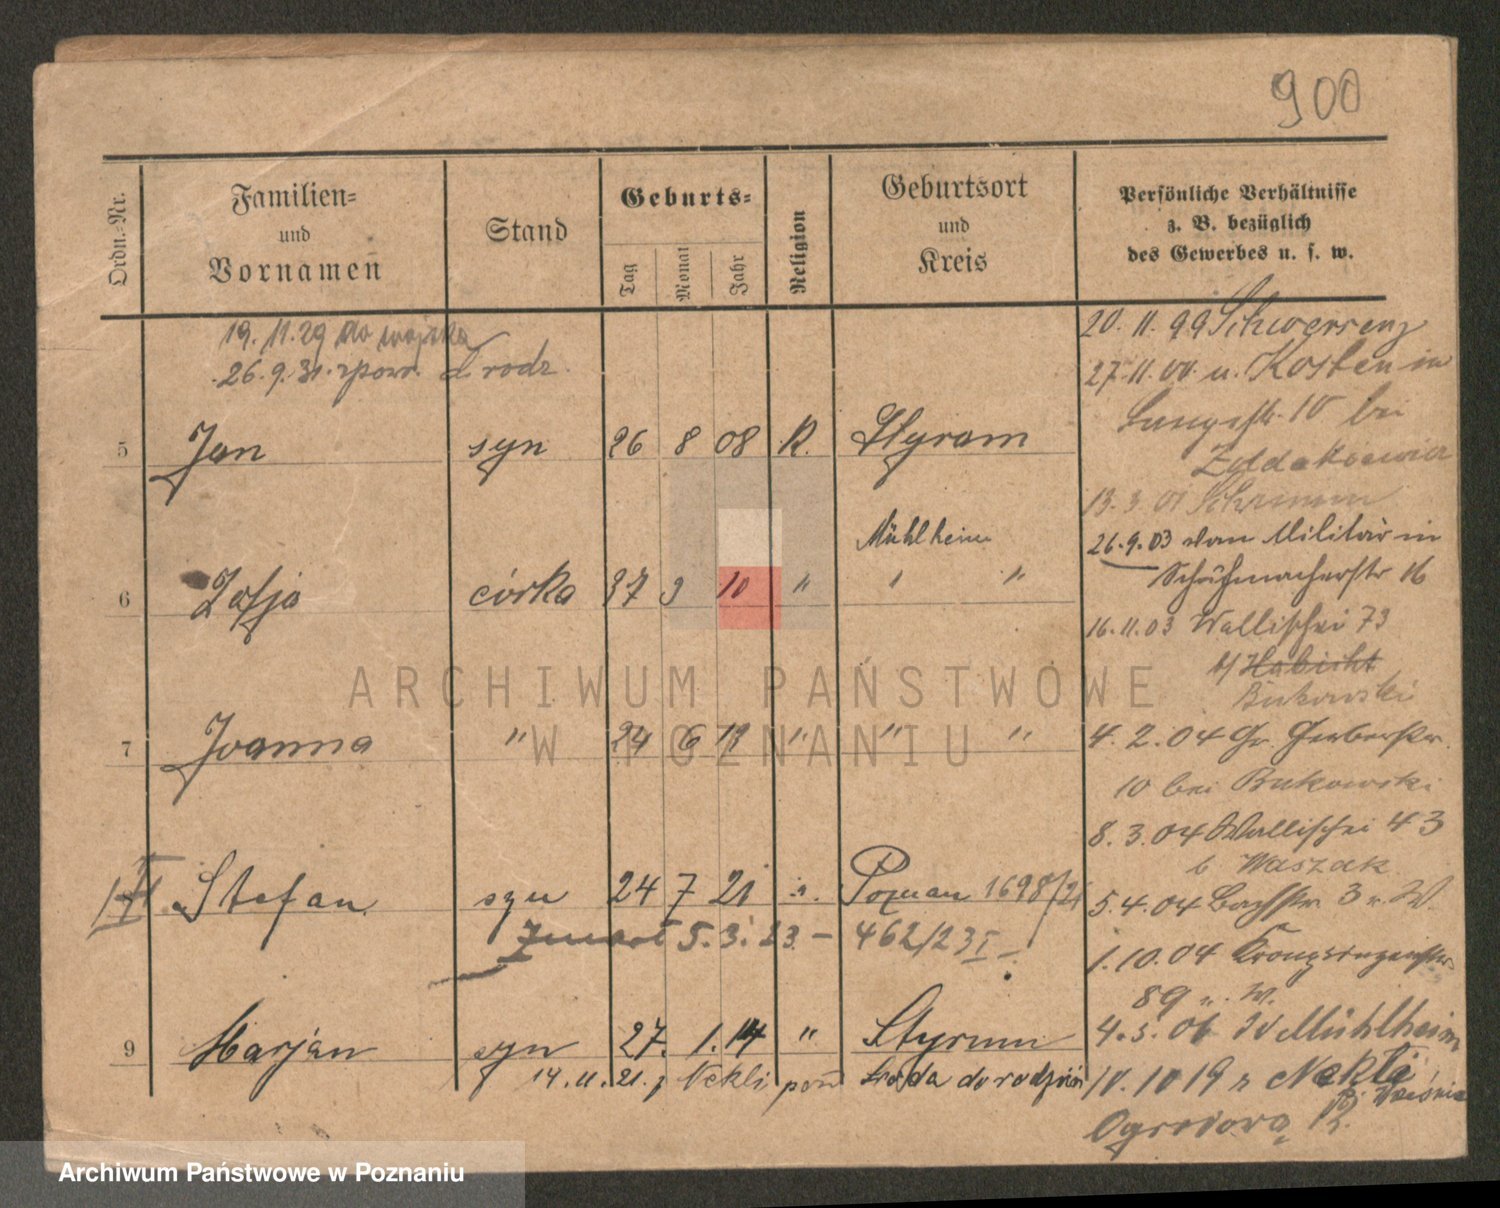 900
Ordn.-Nr.
Familien-
und
Vornamen
Stand
Geburts-
Tag
Monat
Jahr
Religion
Geburtsort
und
Kreis
Persönliche Verhältnisse
z. B. bezüglich
des Gewerbes u. s. w.
19.11.29 do wojska
26.9.31. zpow. d rodz.
5 Jan syn 26 8 08 K. Styram
Mühlheim
6 Zofja córka 27 3 10 " " "
7 Joanna " 24 6 11 " " "
Stefan syn 24 7 21 Poznan 1698/21
Zmarł 5.3.23. – 462/23 I –
9 Marjan syn 27. 1. 14 " Styrum
14.11.21. z Nekli pow Środa do rodziców
20.11.99 Schwersenz
27.11.00 u. Kosten in
Langestr. 10 bei
13.3.01 Schrimm
26.9.03 vom Militär in
Schuhmacherstr 16
16.11.03 Wallischei 73
b/ Habicht
Bukowski
4.2.04 Gr. Gerberstr.
10 bei Bukowski
8.3.04 Wallischei 43
b Waszak
5.4.04 Bachstr. 3 u. W.
1.10.04 Kronprinzenstr.
89 u. W.
4.5.06 Mühlheim
10.10 19 z Nekli
Ogrodowa 12.
ARCHIWUM PAŃSTWOWE
W POZNANIU
Archiwum Państwowe w Poznaniu